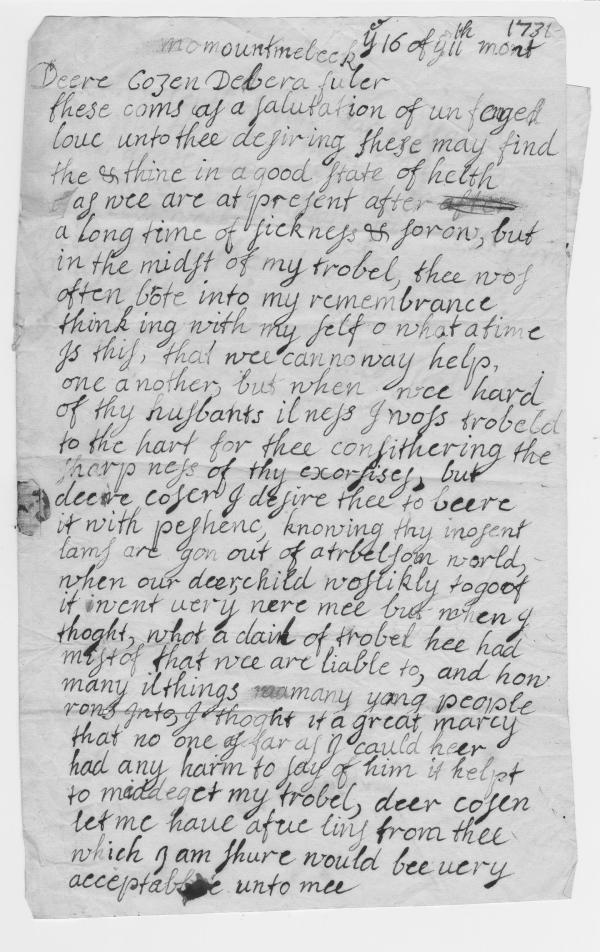 momountmebeck ye 16 of ye 11th mont 1731
Deere Cozen Debera fuler
these coms as a salutation of unfenged
love unto thee desiring these may find
the & thine in a good state of helth
as wee are at present after
a long time of sickness & sorow, but
in the midst of my trobel, thee wos
often bote into my remembrance
think ing with my self o what a time
Is this, that wee can no way help,
one another, but when wee hard
of thy husbants ilness I woss trobeld
to the hart for thee consithering the
sharp ness of thy exorsises, but
deere cosen I desire thee to beere
it with peshenc, knowing thy inosent
lams are gon out of a trbelsom world,
when our deer child wos likly to goof
it went very nere mee but when I
thoght, what a dail of trobel hee had
mist of that wee are liable to, and how
many il things many yong people
rons Into, I thoght it a great marcy
that no one as far as I cauld heer
had any harm to say of him it helpt
to middeget my trobel, deer cosen
let me have a fue lins from thee
which I am shure would bee very
acceptable unto mee